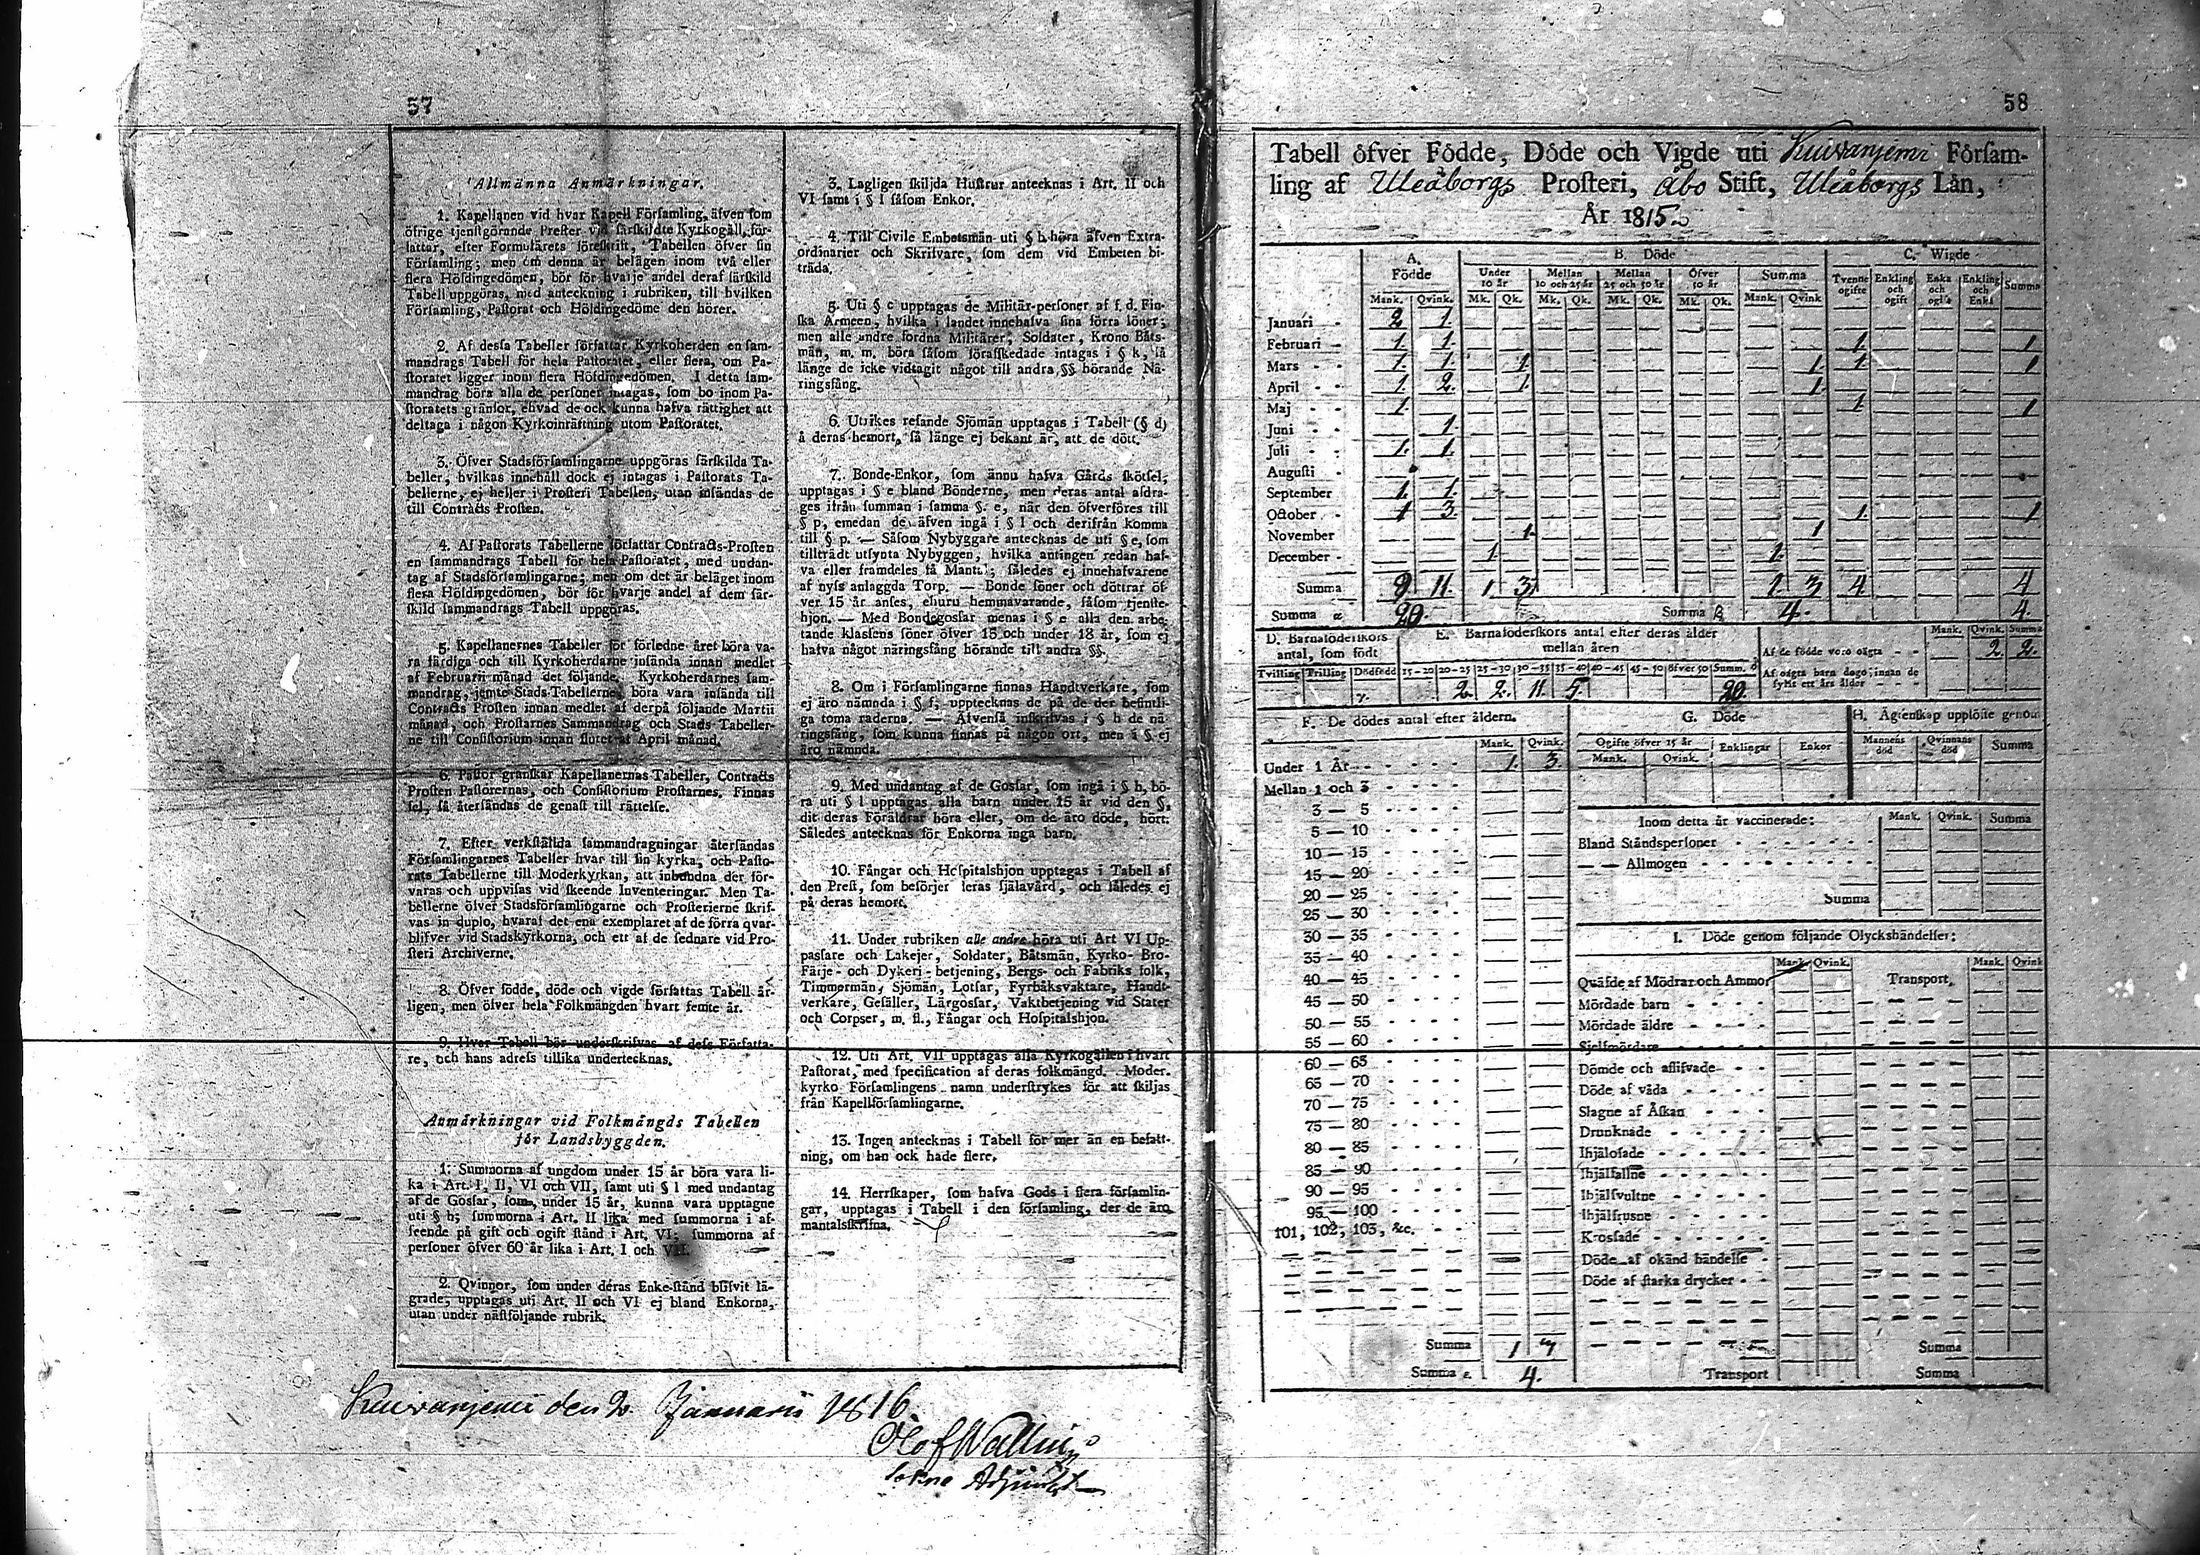 57
Allmänna Anmärkningar.
1. Kapellanen vid hvar Kapell Församling, äfven som
öfrige tjenstgörande Prester vid särskildte Kyrkogäll, för-
fattar, efter Formulärets föreskrift, Tabellen öfver sin
Församling; men om denna är belägen inom två eller
flera Höfdingedömen, bör för hvarje andel deraf särskild
Tabell uppgöras, med anteckning i rubriken, till hvilken
Församling, Pastorat och Höfdingedöme den hörer.
2. Af dessa Tabeller författar Kyrkoherden en sam-
mandrags Tabell för hela Pastoratet, eller flera, om Pa-
storatet ligger inom flera Höfdingedömen. I detta sam-
mandrag böra alla de personer intagas, som bo inom Pa-
storatets gränsor, ehvad de ock kunna hafva rättighet att
deltaga i någon Kyrkoinrättning utom Pastoratet.
3. Öfver Stadsförsamlingarne uppgöras särskilda Ta-
beller, hvilkas innehåll dock ej intagas i Pastorats Ta-
bellerne, ej heller i Prosteri Tabellen, utan insändas de
till Contracts Prosten.
4. Af Pastorats Tabellerne författar Contracts-Prosten
en sammandrags Tabell för hela Pastoratet, med undan-
tag af Stadsförsamlingarne; men om det är beläget inom
flera Höfdingedömen, bör för hvarje andel af dem sär-
skild sammandrags Tabell uppgöras.
5. Kapellanernes Tabeller för förledne året böra va-
ra färdiga och till Kyrkoherdarne insända innan medlet
af Februarii månad det följande. Kyrkoherdarnes sam-
mandrag, jemte Stads-Tabellerne, böra vara insända till
Contracts Prosten innan medlet af derpå följande Martii
månad, och Prostarnes Sammandrag och Stads-Tabeller-
ne till Consistorium innan slutet af April månad.
6. Pastor granskar Kapellanernas Tabeller, Contracts
Prosten Pastorernas, och Consistorium Prostarnes. Finnas
fel, så återsändas de genast till rättelse.
7. Efter verkställda sammandragningar återsändas
Församlingarnes Tabeller hvar till sin kyrka, och Pasto-
rats Tabellerne till Moderkyrkan, att inbundna der för-
varas och uppvisas vid skeende Inventeringar. Men Ta-
bellerne öfver Stadsförsamlingarne och Prosterierne skrif-
vas in duplo, hvaraf det ena exemplaret af de förra qvar-
blifver vid Stadskyrkorna, och ett af de sednare vid Pro-
steri Archiverne.
8. Öfver födde, döde och vigde författas Tabell år-
ligen, men öfver hela Folkmängden hvart femte år.
9. Hvar Tabell bör underskrifvas af dess Författa-
re, och hans adress tillika undertecknas.
Anmärkningar vid Folkmängds Tabellen
för Landsbyggden.
1. Summorna af ungdom under 15 år böra vara li-
ka i Art. I, II, VI och VII, samt uti § l med undantag
af de Gossar, som, under 15 år, kunna vara upptagne
uti § h; summorna i Art. II lika med summorna i af-
seende på gift och ogift stånd i Art. VI; summorna af
personer öfver 60 år lika i Art. I och VII.
2. Qvinnor, som under deras Enke-stånd blifvit lä-
grade, upptagas uti Art. II och VI ej bland Enkorna,
utan under nästföljande rubrik.
3. Lagligen skiljda Hustrur antecknas i Art. II och
VI samt i § l såsom Enkor.
4. Till Civile Embetsmän uti § b höra äfven Extra-
ordinarier och Skrifvare, som dem vid Embeten bi-
träda.
5. Uti § c upptagas de Militär-personer af f. d. Fin-
ska Armeen, hvilka i landet innehafva sina förra löner;
men alle andre fordna Militärer, Soldater, Krono Båts-
män, m. m. böra såsom förafskedade intagas i § k, så
länge de icke vidtagit något till andra §§ hörande Nä-
ringsfång.
6. Utrikes resande Sjömän upptagas i Tabell (§ d)
å deras hemort, så länge ej bekant är, att de dött.
7. Bonde-Enkor, som ännu hafva Gårds skötsel,
upptagas i § e bland Bönderne, men deras antal afdra-
ges ifrån summan i samma § e, när den öfverföres till
§ p, emedan de äfven ingå i § l och derifrån komma
till § p. — Såsom Nybyggare antecknas de uti § e, som
tillträdt utsynta Nybyggen, hvilka antingen redan haf-
va eller framdeles få Mantal; således ej innehafvarene
af nyss anlaggda Torp. — Bonde söner och döttrar öf-
ver 15 år anses, ehuru hemmavarande, såsom tjenste-
hjon. — Med Bondegossar menas i § e alla den arbe-
tande klassens söner öfver 15 och under 18 år, som ej
hafva något näringsfång hörande till andra §§.
8. Om i Församlingarne finnas Handtverkare, som
ej äro nämnda i § f, upptecknas de på de der befintli-
ga toma raderna. — Äfvenså inskrifvas i § h de nä-
ringsfång, som kunna finnas på någon ort, men i § ej
äro nämnda.
9. Med undantag af de Gossar, som ingå i § h, bö-
ra uti § l upptagas alla barn under 15 år vid den §,
dit deras Föräldrar höra eller, om de äro döde, hört.
Således antecknas för Enkorna inga barn.
10. Fångar och Hospitalshjon upptagas i Tabell af
den Prest, som besörjer deras själavård, och således ej
på deras hemort.
11. Under rubriken alle andre höra uti Art VI Up-
passare och Lakejer, Soldater, Båtsmän, Kyrko- Bro-
Färje- och Dykeri-betjening, Bergs- och Fabriks folk,
Timmermän, Sjömän, Lotsar, Fyrbåksvaktare, Handt-
verkare, Gesäller, Lärgossar, Vaktbetjening vid Stater
och Corpser, m. fl., Fångar och Hospitalshjon.
12. Uti Art. VII upptagas alla Kyrkogällen i hvart
Pastorat, med specification af deras folkmängd. Moder-
kyrko Församlingens namn understrykes för att skiljas
från Kapellförsamlingarne.
13. Ingen antecknas i Tabell för mer än en befatt-
ning, om han ock hade flere.
14. Herrskaper, som hafva Gods i flera församlin-
gar, upptagas i Tabell i den församling, der de äro
mantalsskrifna.
Kuivaniemi den 2. Januarii 1816
Olof Wallin
Adjunct
58
Tabell öfver Födde, Döde och Vigde uti Kuivaniemi Försam-
ling af Uleåborgs Prosteri, Åbo Stift, Uleåborgs Län,
År 1815.
A. Födde B. Döde C. Wigde
Under 10 år Mellan 10 och 25 år Mellan 25 och 50 år Öfver 50 år Summa Tvenne ogifte Enkling och ogift Enka och ogift Enkling och Enka Summa
Mank. Qvink. Mk. Qk. Mk. Qk. Mk. Qk. Mk. Qk. Mank. Qvink
Januari 2. 1.
Februari 1. 1. 1. 1
Mars 1. 1. 1. 1. 1.
April 1. 2. 1. 1.
Maj 1. 1. 1
Juni 1.
Juli 1. 1.
Augusti
September 1. 1.
October 1 3. 1. 1
November 1. 1
December 1. 1.
Summa 9 11. 1 3. 1. 3 4. 4
Summa 20. Summa 4. 4.
D. Barnaföderskors antal, som födt
Tvilling Trilling Dödfödd
E. Barnaföderskors antal efter deras ålder mellan åren
15-20 20-25 25-30 30-35 35-40 40-45 45-50 öfver 50 Summ.
2. 2. 11. 5. 20.
Mank. Qvink. Summa
Af de födde voro oägta 2. 2.
Af oägta barn dogo innan de fyllt ett års ålder
F. De dödes antal efter åldern.
Mank. Qvink.
Under 1 År 1. 3.
Mellan 1 och 3
3 — 5
5 — 10
10 — 15
15 — 20
20 — 25
25 — 30
30 — 35
35 — 40
40 — 45
45 — 50
50 — 55
55 — 60
60 — 65
65 — 70
70 — 75
75 — 80
80 — 85
85 — 90
90 — 95
95 — 100
101, 102, 103, &c.
Summa 1
Summa 4.
G. Döde
Ogifte öfver 15 år Enklingar Enkor
Mank. Qvink.
H. Ägtenskap upplöste genom
Mannens död Qvinnans död Summa
Inom detta år vaccinerade: Mank. Qvink. Summa
Bland Ståndspersoner
— — Allmogen
Summa
I. Döde genom följande Olyckshändelser:
Mank. Qvink. Mank. Qvink
Quäfde af Mödrar och Ammor Transport
Mördade barn
Mördade äldre
Sjelfmördare
Dömde och aflifvade
Döde af våda
Slagne af Åskan
Drunknade
Ihjälofade
Ihjälfallne
Ihjälsvultne
Ihjälfrusne
Krossade
Döde af okänd händelse
Döde af starka drycker
Summa
Transport Summa